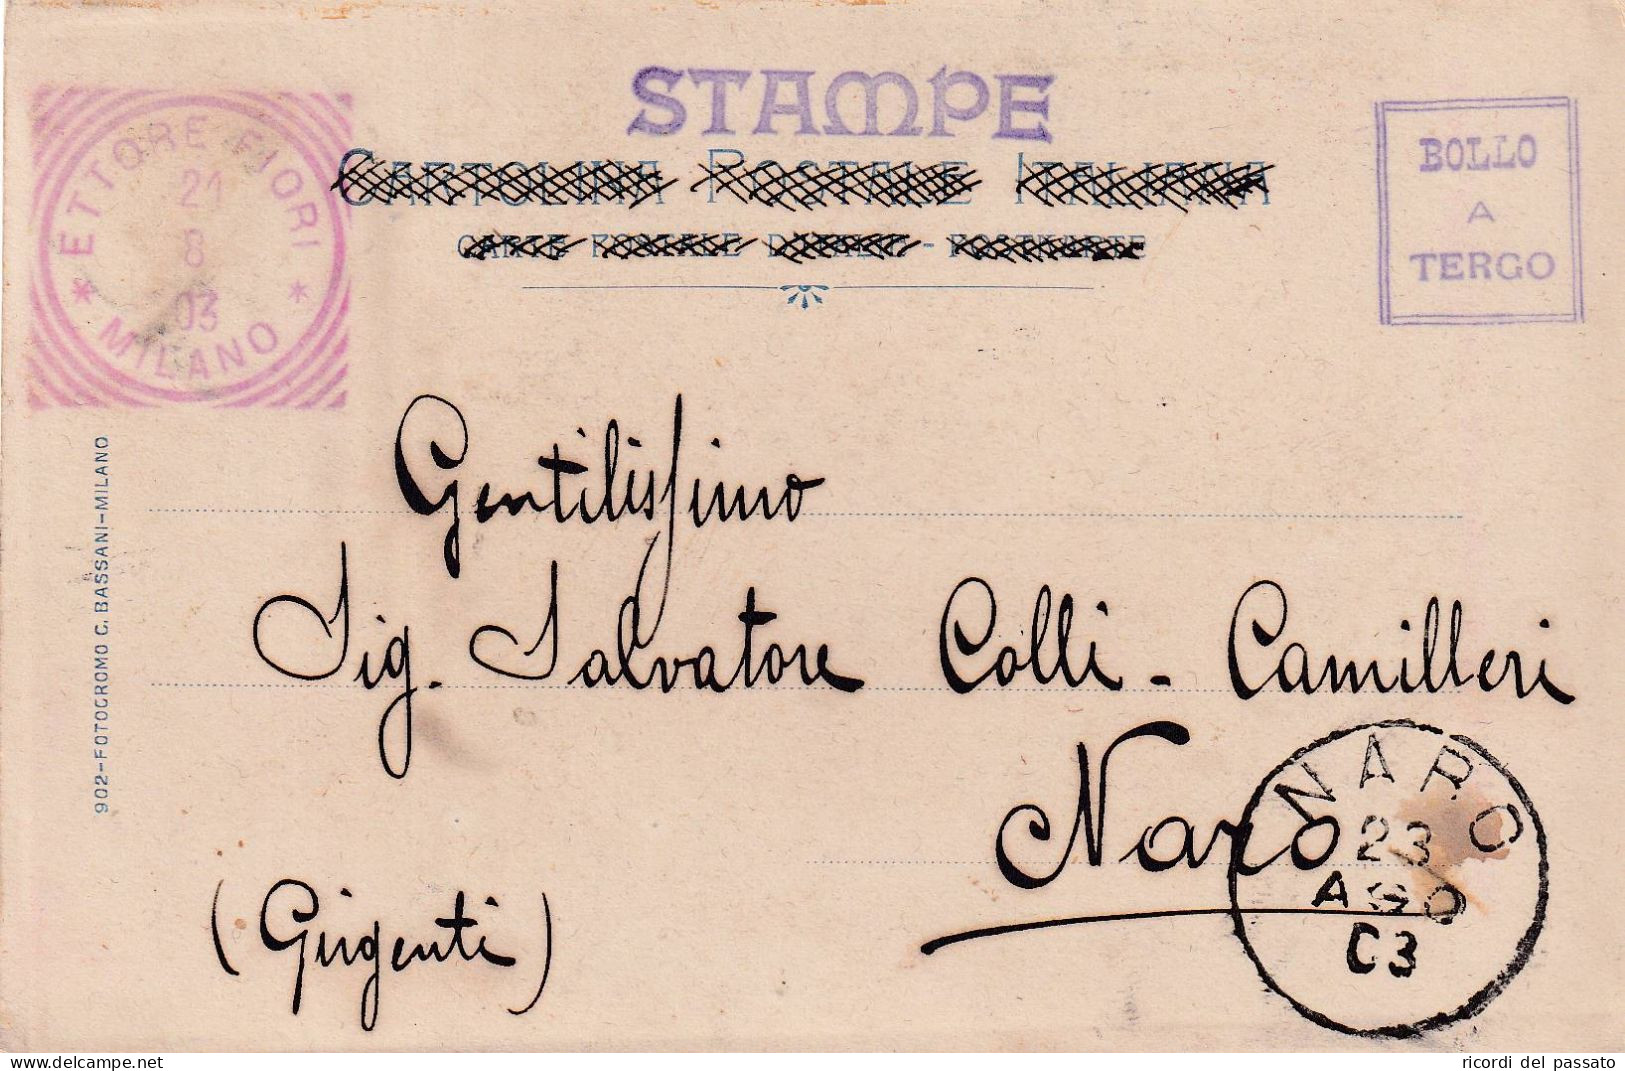 STAMPE
CARTOLINA POSTALE ITALIANA
CARTE POSTALE D'ITALIE - POSTKARTE
BOLLO
A
TERGO
ETTORE FIORI
21
8
03
* MILANO *
902-FOTOCROMO C. BASSANI-MILANO
Gentilissimo
Sig. Salvatore Colli - Camilleri
Naro
(Girgenti)
NARO
23
AGO
03
ricordi del passato